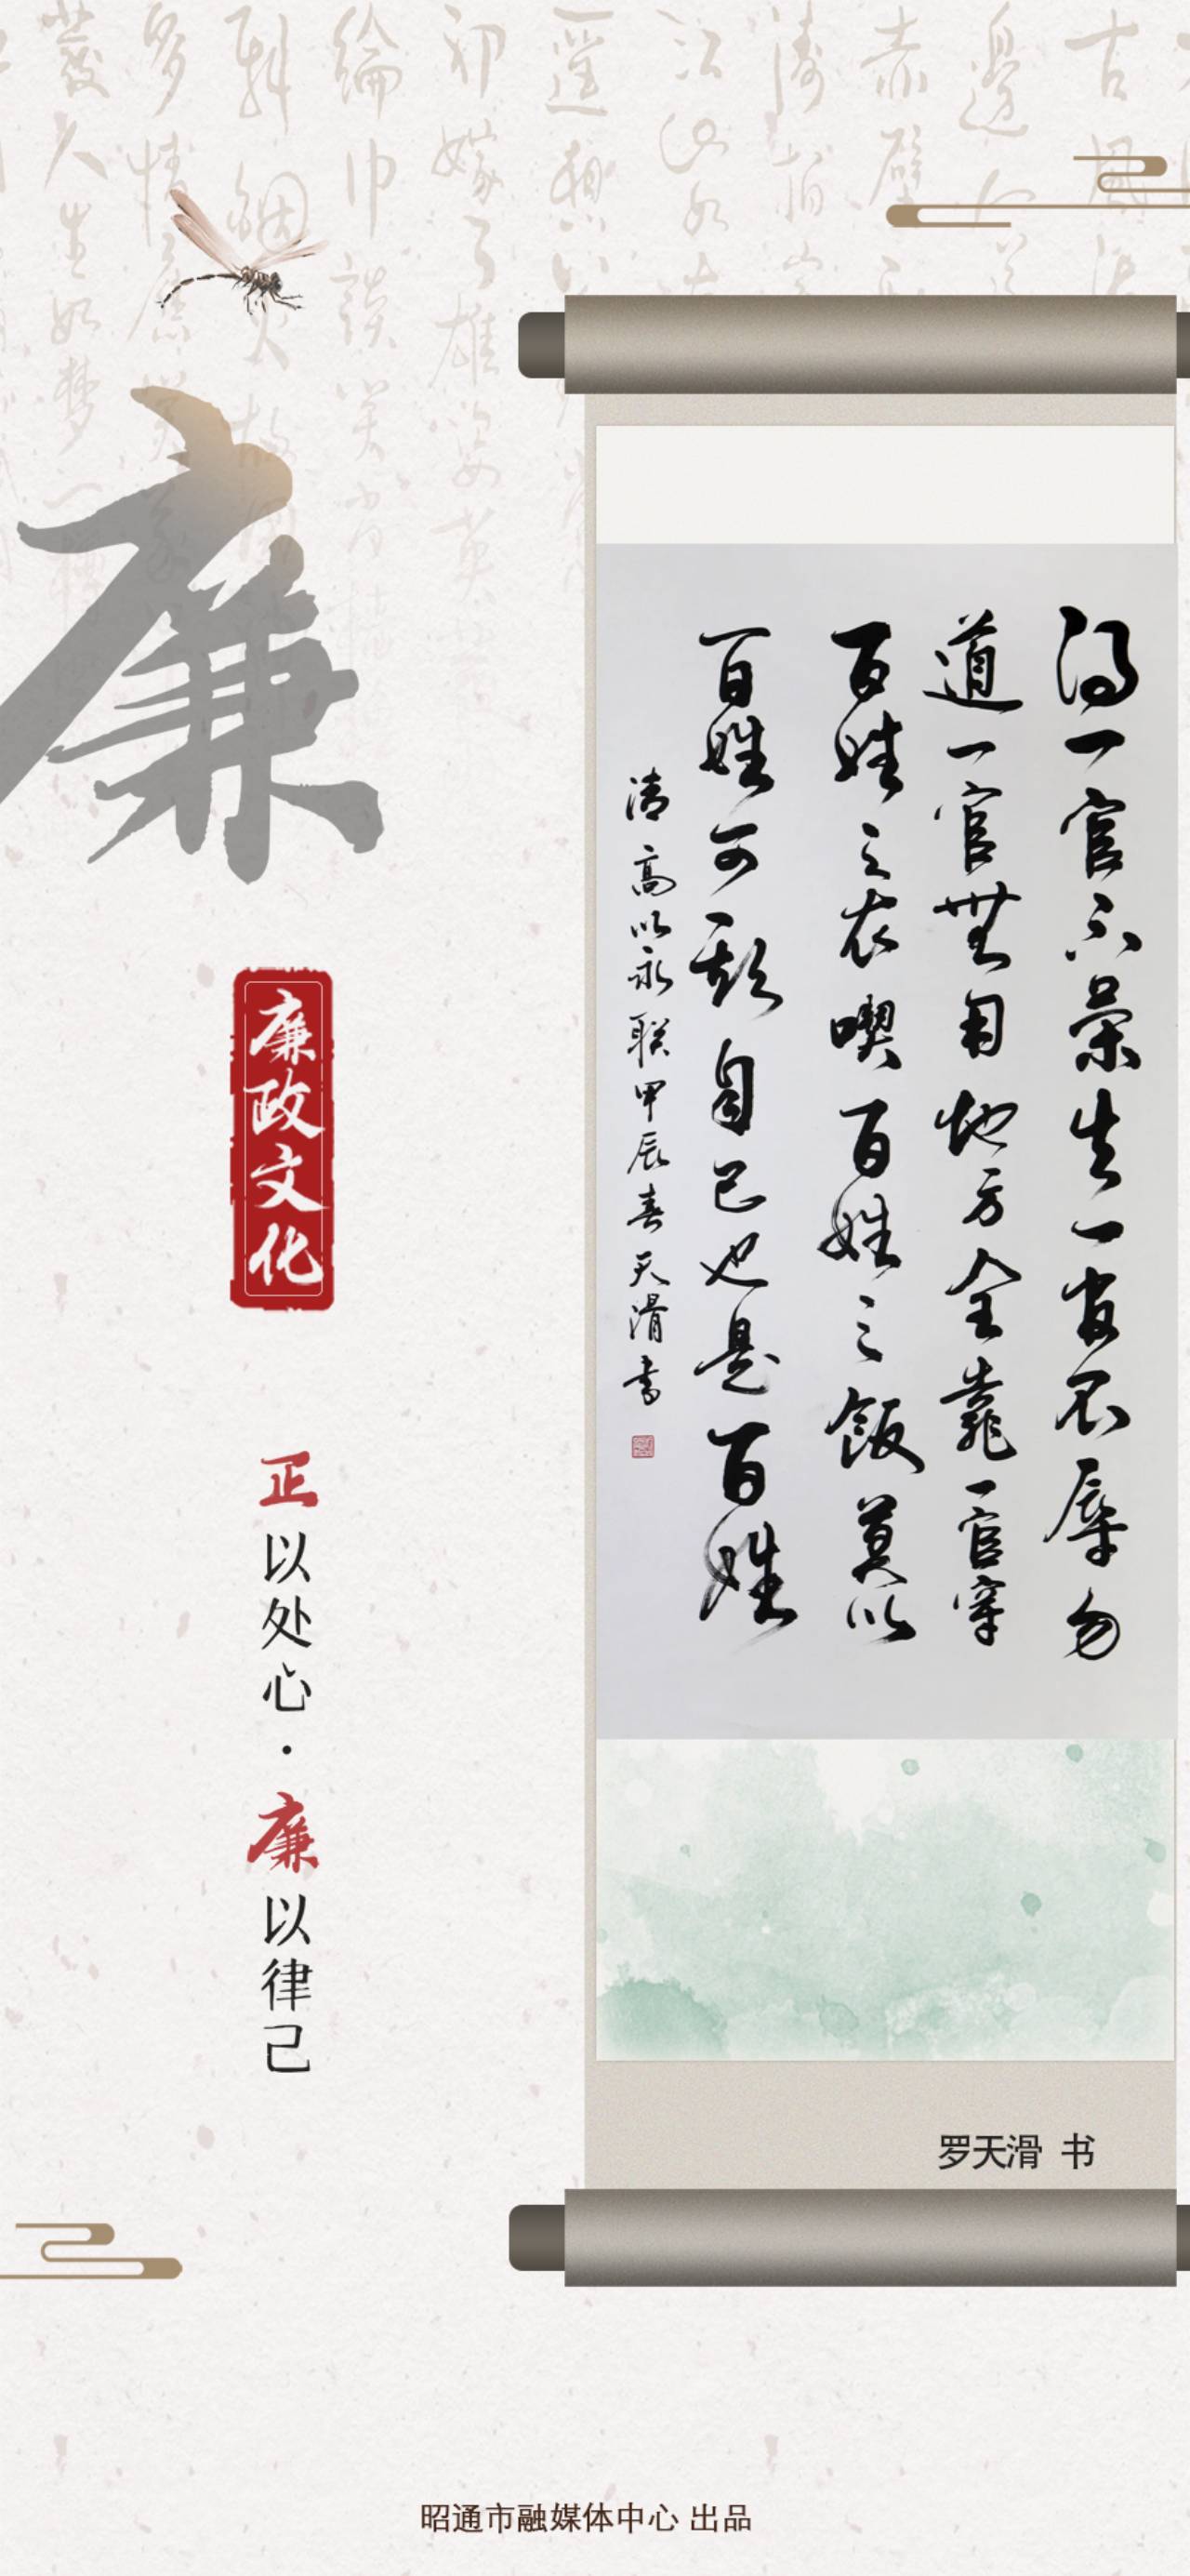 得一官不荣失一官不辱勿
道一官無用地方全靠一官穿
百姓之衣喫百姓之飯莫以
百姓可欺自己也是百姓
清高以永联甲辰春天滑书
罗天滑 书
廉
廉政文化
正以处心·廉以律己
昭通市融媒体中心 出品